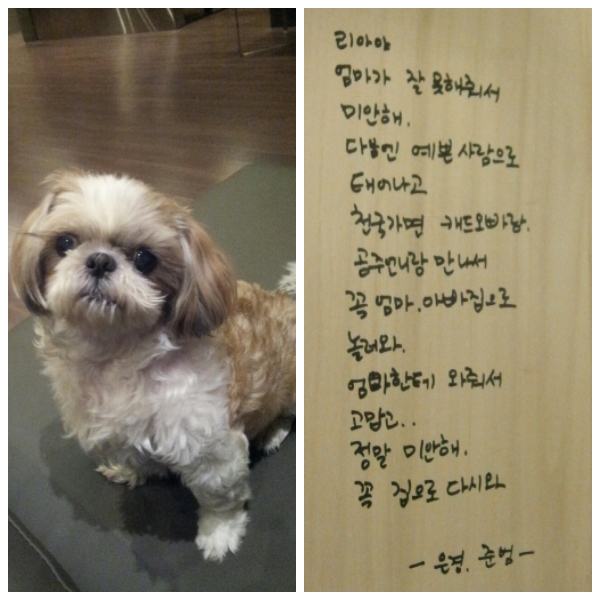 리아야
엄마가 잘 못해줘서
미안해.
다음엔 예쁜 사람으로
태어나고
천국가면 캐드오빠랑.
공주언니랑 만나서
꼭 엄마.아빠집으로
놀러와.
엄마한테 와줘서
고맙고..
정말 미안해.
꼭 집으로 다시와
- 은경. 준범 -